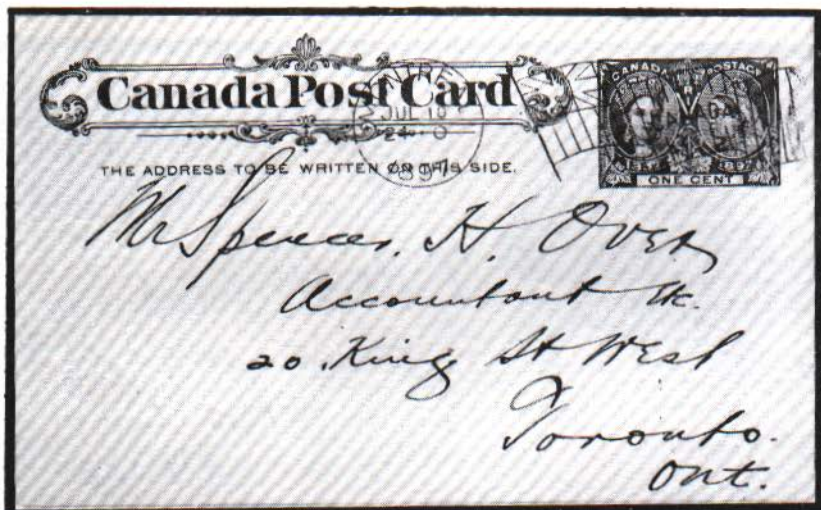 Canada Post Card
MONTREAL
JUL 19
24 0
1897
CANADA POSTAGE
ONE CENT
THE ADDRESS TO BE WRITTEN ON THIS SIDE.
Mr Spencer. H. Over
Accountant &c.
20. King St West
Toronto.
Ont.